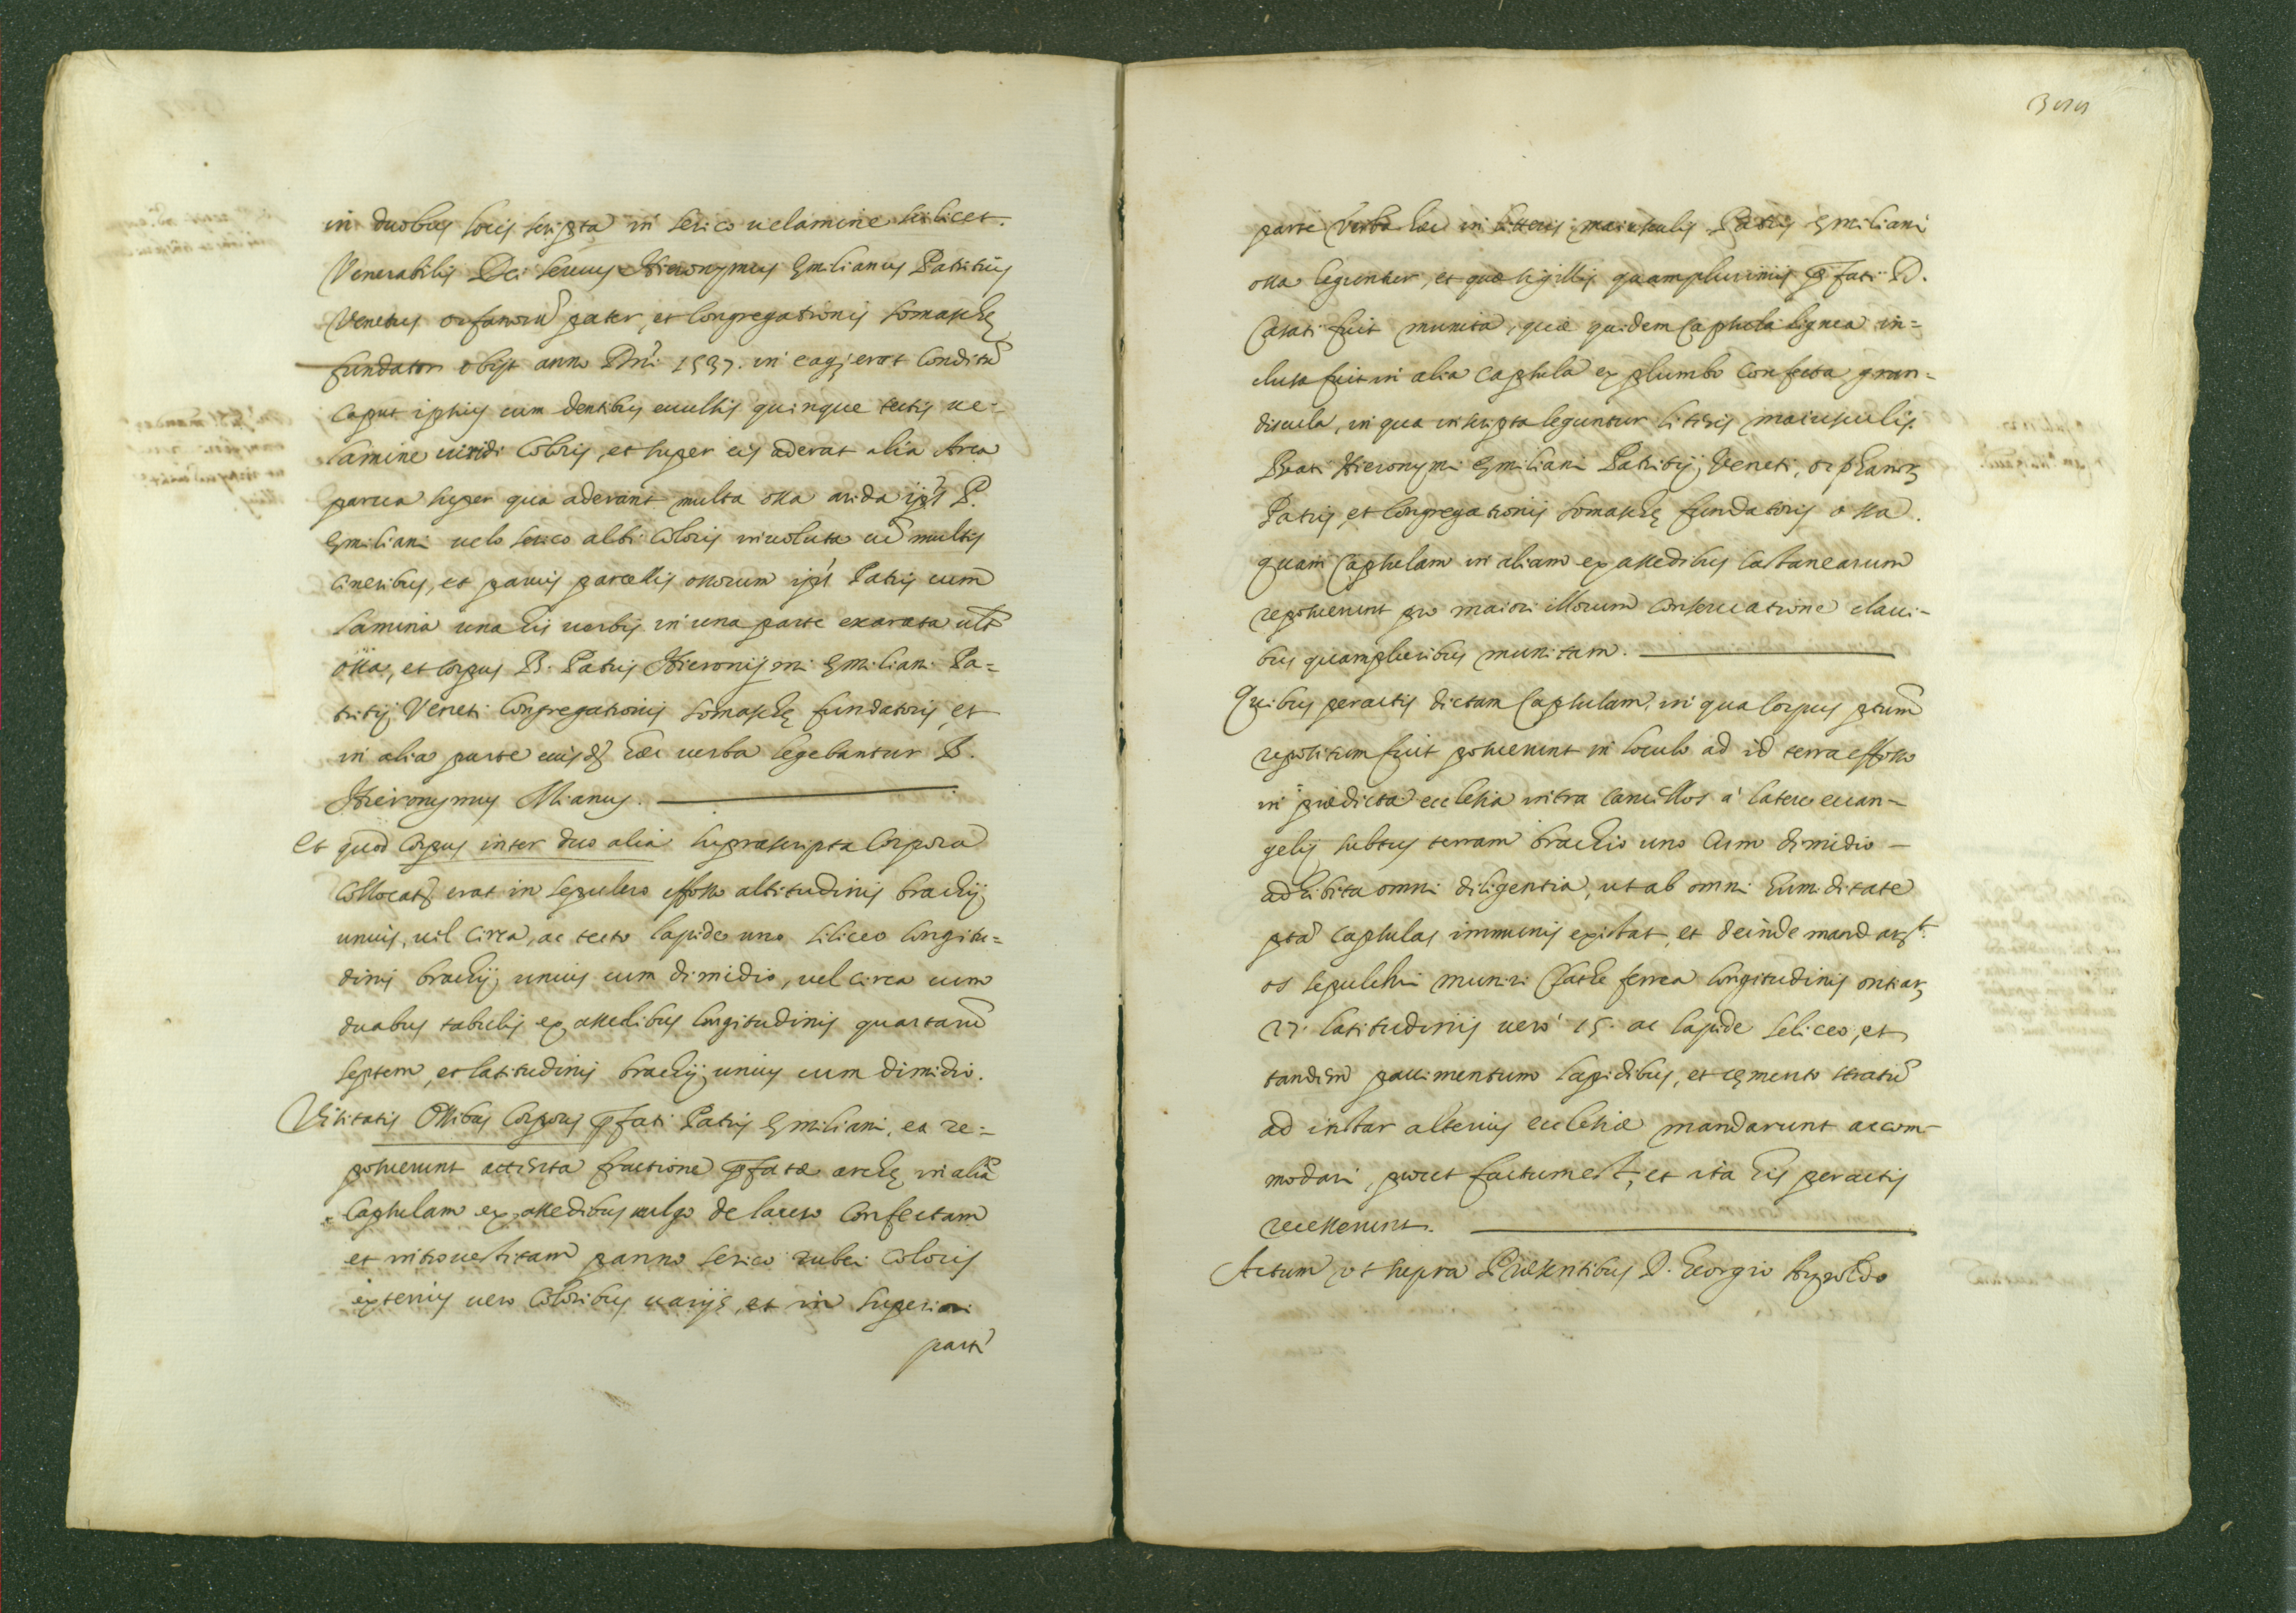 in duobus locis scripta in serico uelamine scilicet.
Venerabilis Dei seruus Hieronymus Emilianus Patritius
Venetus orfanorũ pater, et Congregationis Somaschę
fundator obijt anno Dñi 1537. in eaq; erat Conditũ
Caput ipsius cum dentibus euulsis quinque tectis ue-
lamine uiridi Coloris, et super eis aderat alia Arca
parua super qua aderant multa ossa arida ip̃s P.
Emiliani uelo serico albi Coloris inuoluta cũ multis
Cineribus, et paruis parcellis ossorum ip̃s Patris cum
lamina una his uerbis in una parte exarata ulƭ
ossa, et Corpus B. Patris Hieronijmi Emiliani Pa=
tritij Veneti Congregationis Somaschę fundatoris, et
in alia parte eiusd̃ hæc uerba legebantur B.
Hieronymus Mianus.
Et quod Corpus inter duo alia suprascripta Corpora
Collocatũ erat in sepulcro effosso altitudinis brachij
unius, uel Circa, ac tecto lapide uno siliceo longitu=
dinis brachij unius cum dimidio, uel circa cum
duabus tabulis ex assedibus longitudinis quartarũ
septem, et latitudinis brachij unius cum dimidio.
Visitatis Ossibus Corporis p̃fati Patris Emiliani, ea re=
posuerunt fractione p̃fatæ archę in aliã
Caps​ulam ex assedibus uulgo de larese Confectam
et introuestitam panno serico rubei Coloris
exterius uero Coloribus uarijs, et in superiori
parte
parte Verba hæc in litteris maiusculis Patris Emiliani
ossa leguntur, et quæ sigillis quamplurimis p̃fati D.
Casati fuit munita, quæ quidem Capsula lignea in=
clusa fuit in alia capsula ex plumbo Confecta gran=
diuscula, in qua inscripta leguntur litteris maiusculis.
Beati Hieronymi Emiliani Patritij Veneti, orphanorꝫ
Patris, et Congregationis Somaschę fundatoris ossa.
quam Capsulam in aliam ex assedibus Castanearum
reposuerunt pro maiori illorum Conseruatione claui-
bus quampluribus munitam.
Quibus peractis dictam Capsulam, in qua Corpus p̃tum
repositum fuit posuerunt in loculo ad id terra effosso
in prædicta ecclesia intra Cancellos à latere euan-
gelij subtus terram brachio uno Cum dimidio -
adhibita omni diligentia, ut ab omni humiditate
p̃ta capsulas immunis existat, et deinde mandarũt.
os sepulchri muniri Crathe ferrea longitudinis ontiarꝫ
27. latitudinis uero 15. ac lapide seliceo, et
tandem pauimentum lapidibus, et cęmento stratũ
ad instar alterius ecclesiæ mandarunt accom-
modari, prout factum est, et ita his peractis
recesserunt.
Actum ut supra Præsentibus D. Georgio